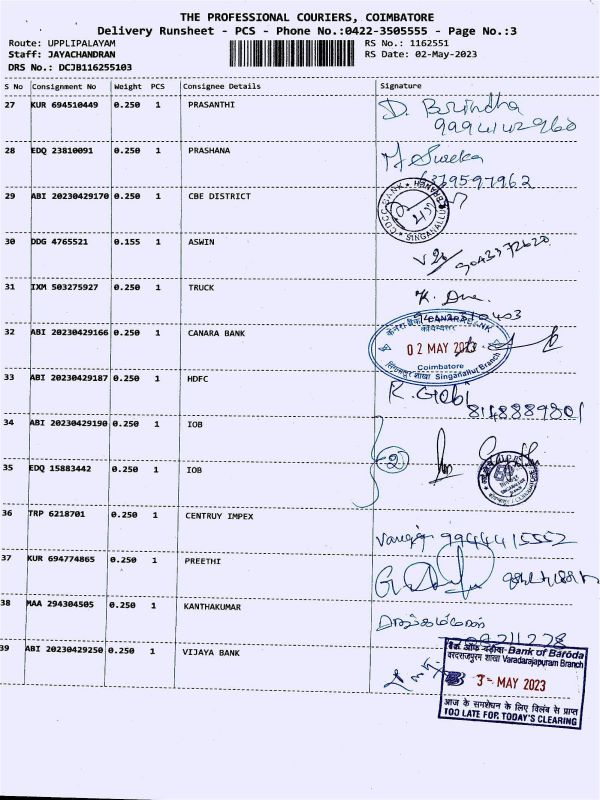 THE PROFESSIONAL COURIERS, COIMBATORE
Delivery Runsheet - PCS - Phone No.:0422-3505555 - Page No.:3
Route: UPPLIPALAYAM
RS No.: 1162551
Staff: JAYACHANDRAN
RS Date: 02-May-2023
DRS No.: DCJB116255103
S No Consignment No Weight PCS Consignee Details Signature
27 KUR 694510449 0.250 1 PRASANTHI D. Brindha
9994142960
28 EDQ 23810091 0.250 1 PRASHANA
6379597962
29 ABI 20230429170 0.250 1 CBE DISTRICT
30 DDG 4765521 0.155 1 ASWIN
31 IXM 503275927 0.250 1 TRUCK
32 ABI 20230429166 0.250 1 CANARA BANK
CANARA BANK
02 MAY 2023
Coimbatore
Singanallur Branch
33 ABI 20230429187 0.250 1 HDFC K. Gobi
8148889801
34 ABI 20230429190 0.250 1 IOB
2
35 EDQ 15883442 0.250 1 IOB
36 TRP 6218701 0.250 1 CENTRUY IMPEX
9944415552
37 KUR 694774865 0.250 1 PREETHI
38 MAA 294304505 0.250 1 KANTHAKUMAR
39 ABI 20230429250 0.250 1 VIJAYA BANK
बैंक ऑफ़ बड़ौदा-Bank of Baroda
वरदराजपुरम शाखा Varadarajapuram Branch
3- MAY 2023
आज के समशोधन के लिए विलंब से प्राप्त
TOO LATE FOR TODAY'S CLEARING